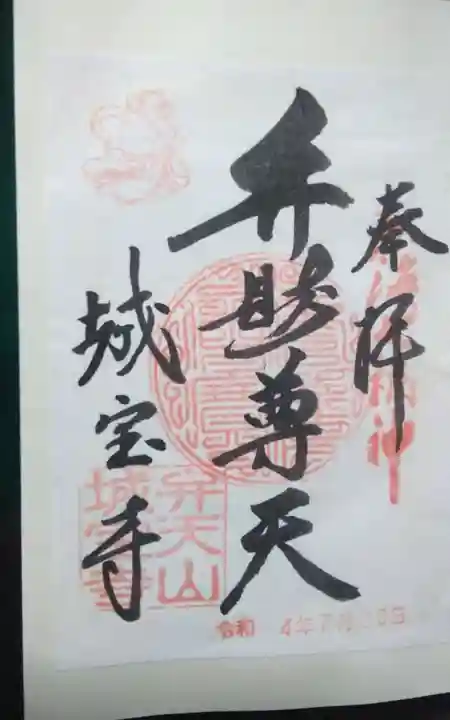 奉拝
弁財尊天
城宝寺
弁天山
城宝寺
令和 4年7月